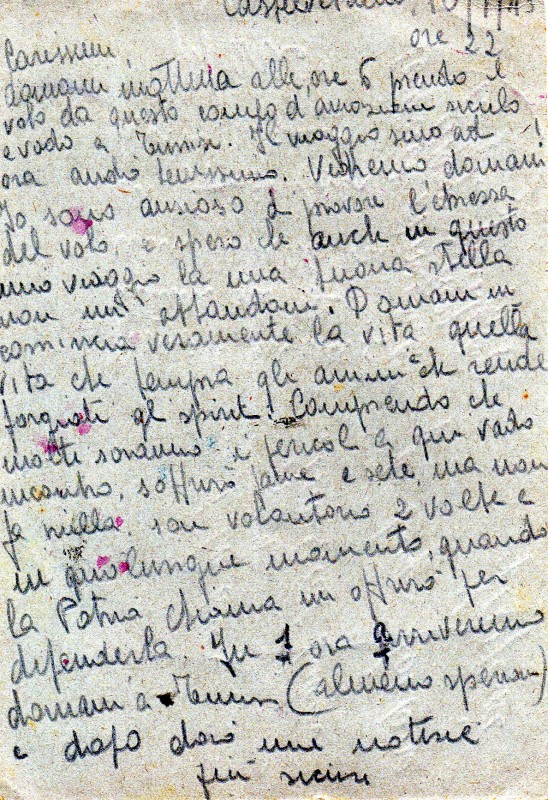 Castelvetrano, 10/1/43
ore 22
Carissimi,
domani mattina alle ore 6 prendo il
volo da questo campo d'aviazione siculo
e vado a Tunisi. Il viaggio sino ad
ora andò benissimo. Vedremo domani!
Io sono ansioso di provare l'ebrezza
del volo, e spero che anch in questo
mio viaggio la mia buona stella
non mi abbandoni. Domani in
comincia veramente la vita quella
vita che tempra gli animi e che rende
forgiati gli spiriti! Comprendo che
molti saranno i pericoli a cui vado
incontro, soffrirò fame e sete, ma non
fa nulla: son volontario 2 volte e
in qualunque momento, quando
la Patria chiama mi offrirò per
difenderla. In 1 ora arriveremo
domani a Tunisi (almeno speriamo)
e dopo darò mie notizie
più sicure